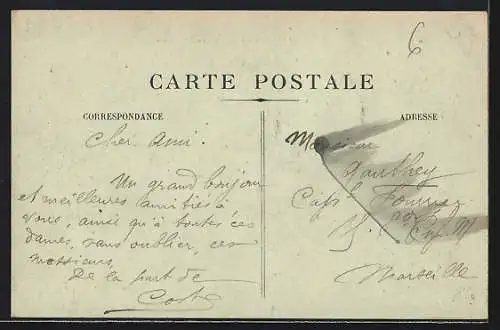 6
CARTE POSTALE
CORRESPONDANCE
ADRESSE
Cher Ami.
Un grand bonjour
et meilleures amitiés à
vous, ainsi qu'à toutes ces
dames, sans oublier, ces
messieurs,
De la part de
Coste
Monsieur
Gauthey
Marseille